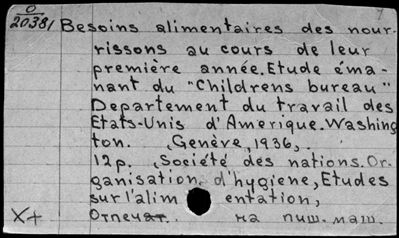 O
20381 Besoins alimentaires des nour-
rissons au cours de leur
première année. Etude éma-
nant du "Childrens bureau"
Departement du travail des
Etats-Unis d'Amerique. Washing
ton. Genève, 1936,.
12p. Société des nations. Or-
ganisation d'hygiene, Etudes
sur l'alim entation,
X+ Отпечат. на пиш. маш.